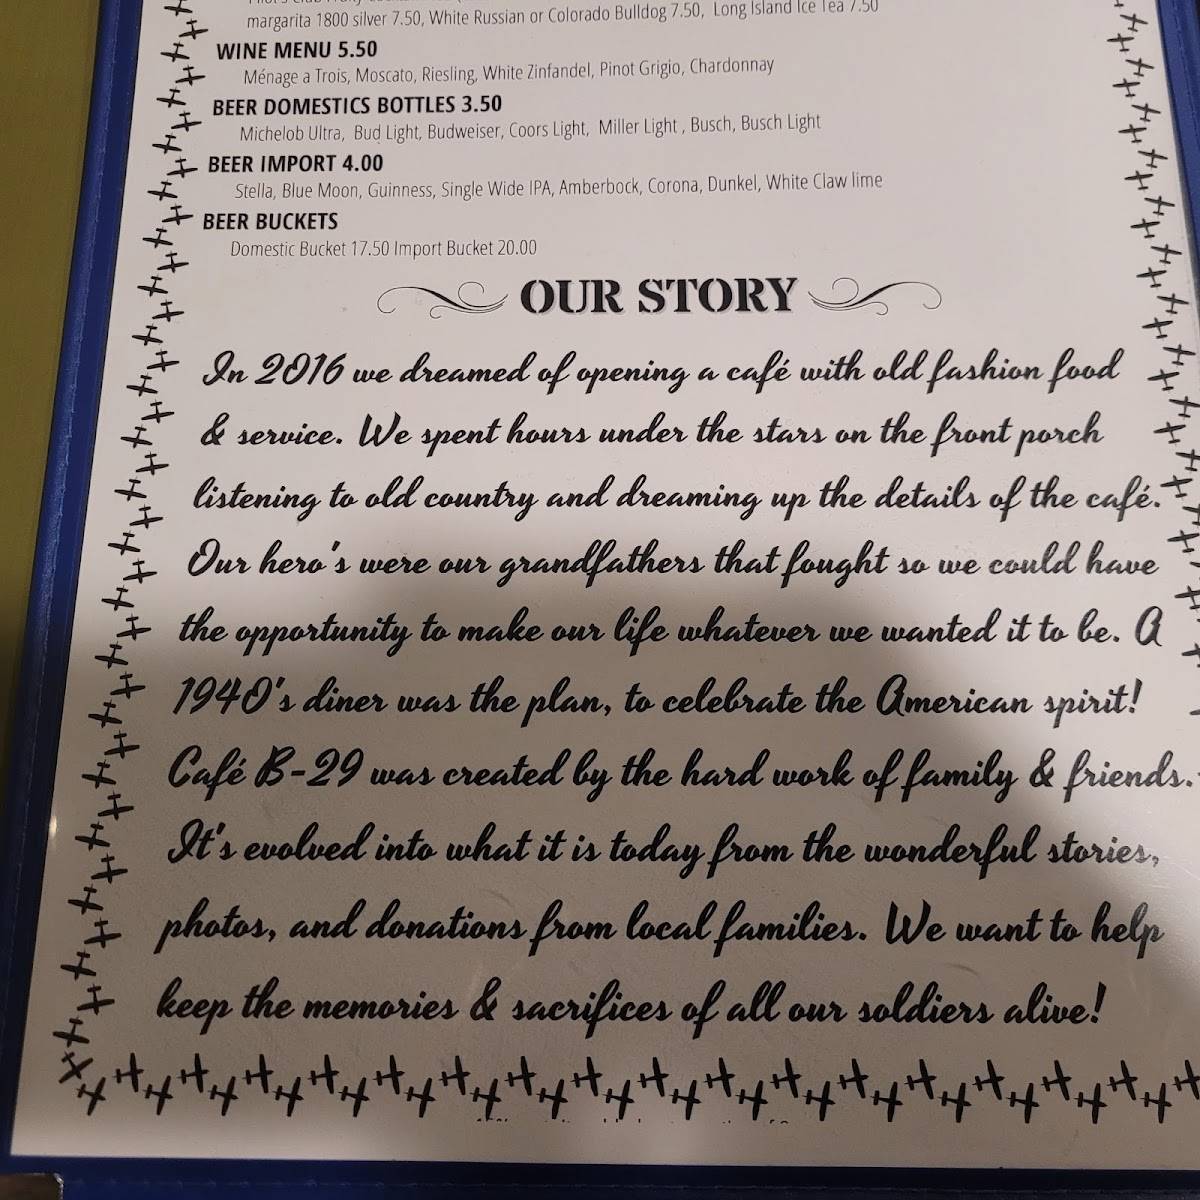 margarita 1800 silver 7.50, White Russian or Colorado Bulldog 7.50, Long Island Ice Tea 7.50
WINE MENU 5.50
Ménage a Trois, Moscato, Riesling, White Zinfandel, Pinot Grigio, Chardonnay
BEER DOMESTICS BOTTLES 3.50
Michelob Ultra, Bud Light, Budweiser, Coors Light, Miller Light , Busch, Busch Light
BEER IMPORT 4.00
Stella, Blue Moon, Guinness, Single Wide IPA, Amberbock, Corona, Dunkel, White Claw lime
BEER BUCKETS
Domestic Bucket 17.50 Import Bucket 20.00
OUR STORY
In 2016 we dreamed of opening a café with old fashion food
& service. We spent hours under the stars on the front porch
listening to old country and dreaming up the details of the café.
Our hero's were our grandfathers that fought so we could have
the opportunity to make our life whatever we wanted it to be. A
1940's diner was the plan, to celebrate the American spirit!
Café B-29 was created by the hard work of family & friends.
It's evolved into what it is today from the wonderful stories,
photos, and donations from local families. We want to help
keep the memories & sacrifices of all our soldiers alive!